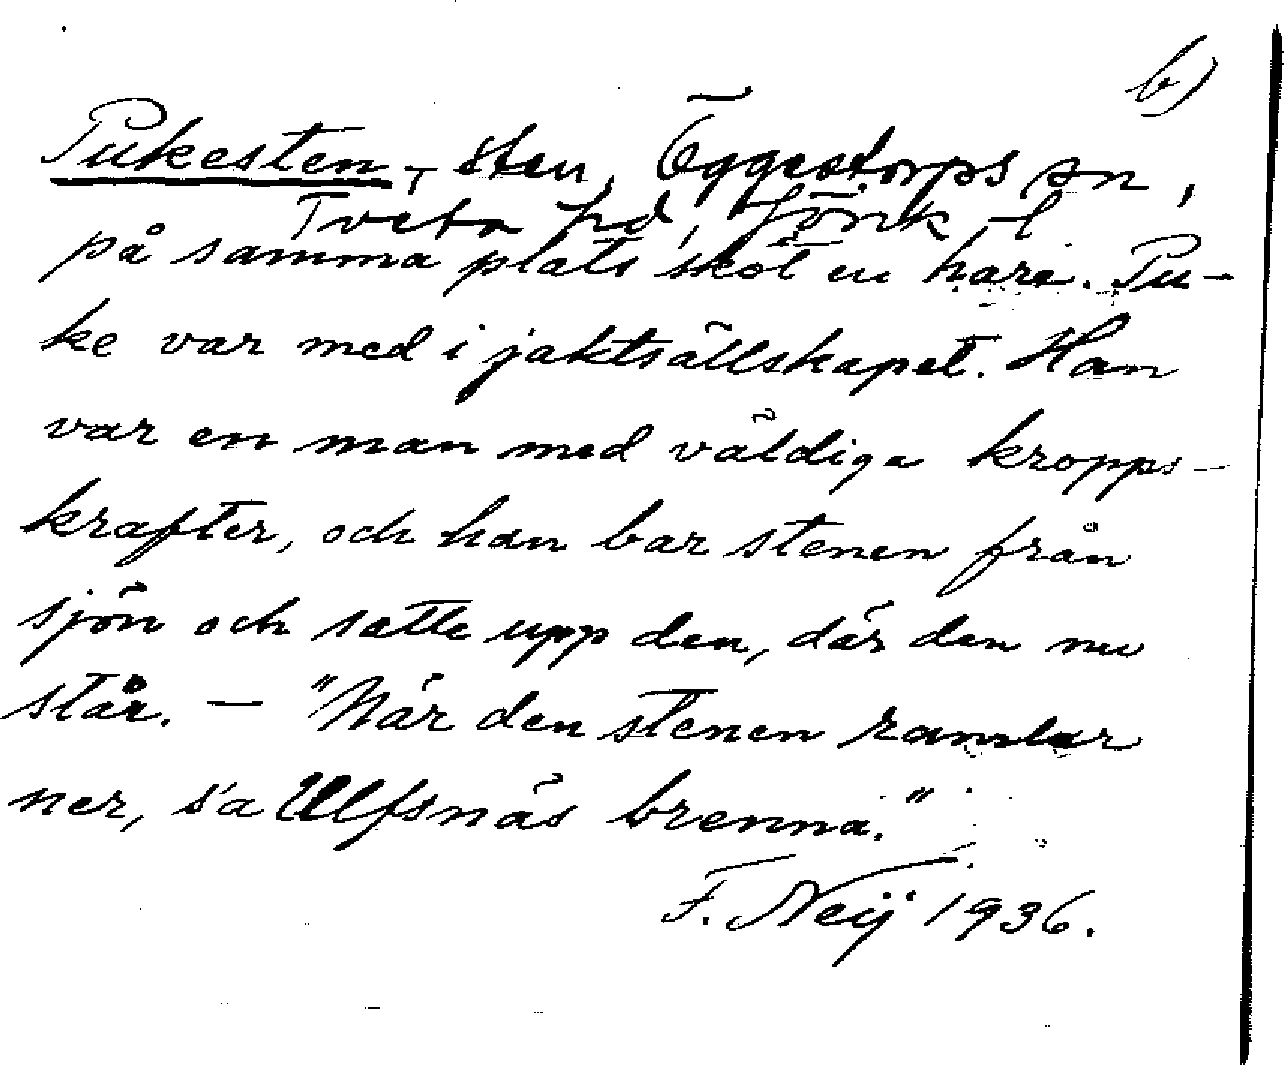 b)
Pukesten, sten, Öggestorps sn,
Tveta hd, Jönk. l.
på samma plats sköt en hare. Pu-
ke var med i jaktsällskapet. Han
var en man med väldiga kropps-
krafter, och han bar stenen från
sjön och satte upp den, där den nu
står. — "När den stenen ramlar
ner, s'a Ulfsnäs brenna."
F. Neij 1936.